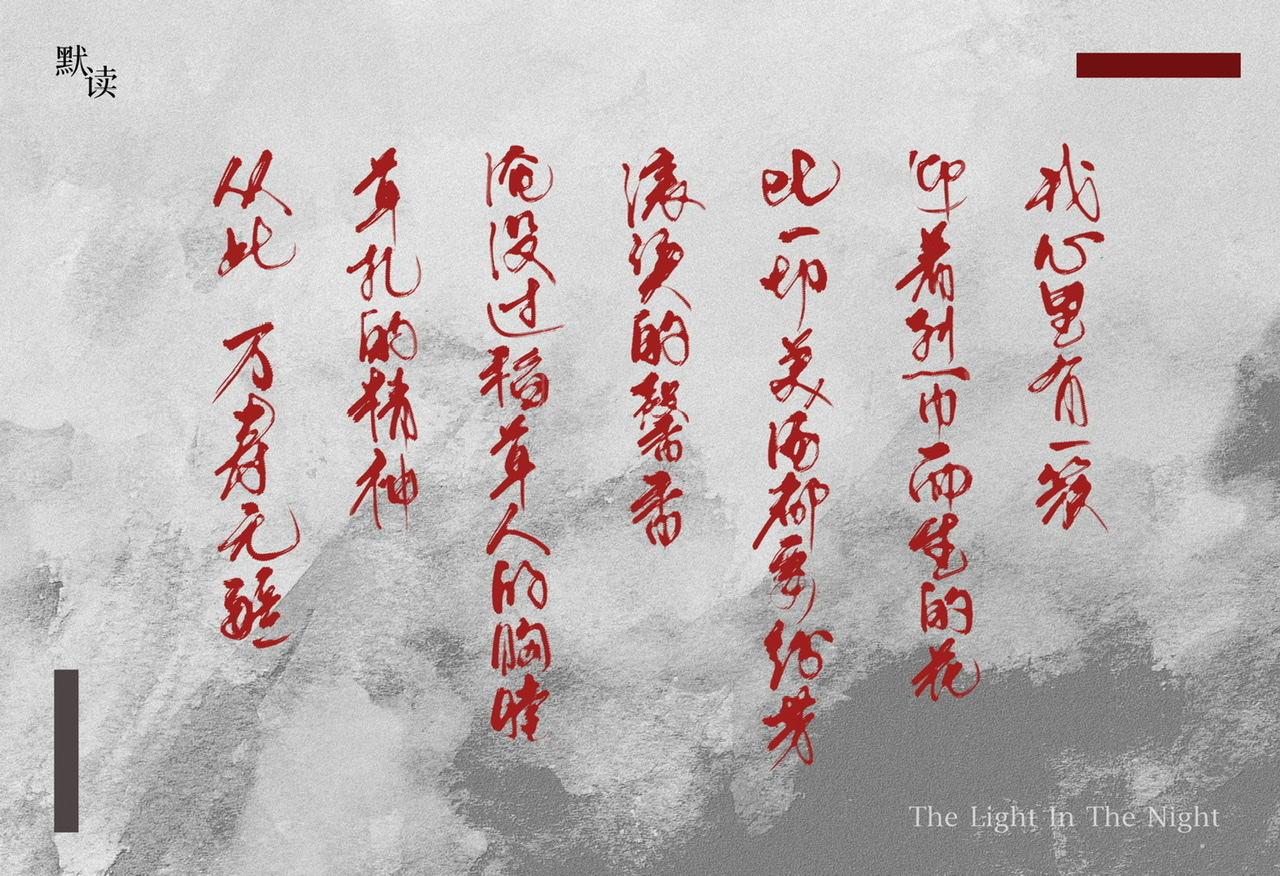 默读
我心里有一簇
迎着烈日而生的花
比一切美酒都要芬芳
滚烫的馨香
淹没过稻草人的胸膛
草扎的精神
从此 万寿无疆
The Light In The Night